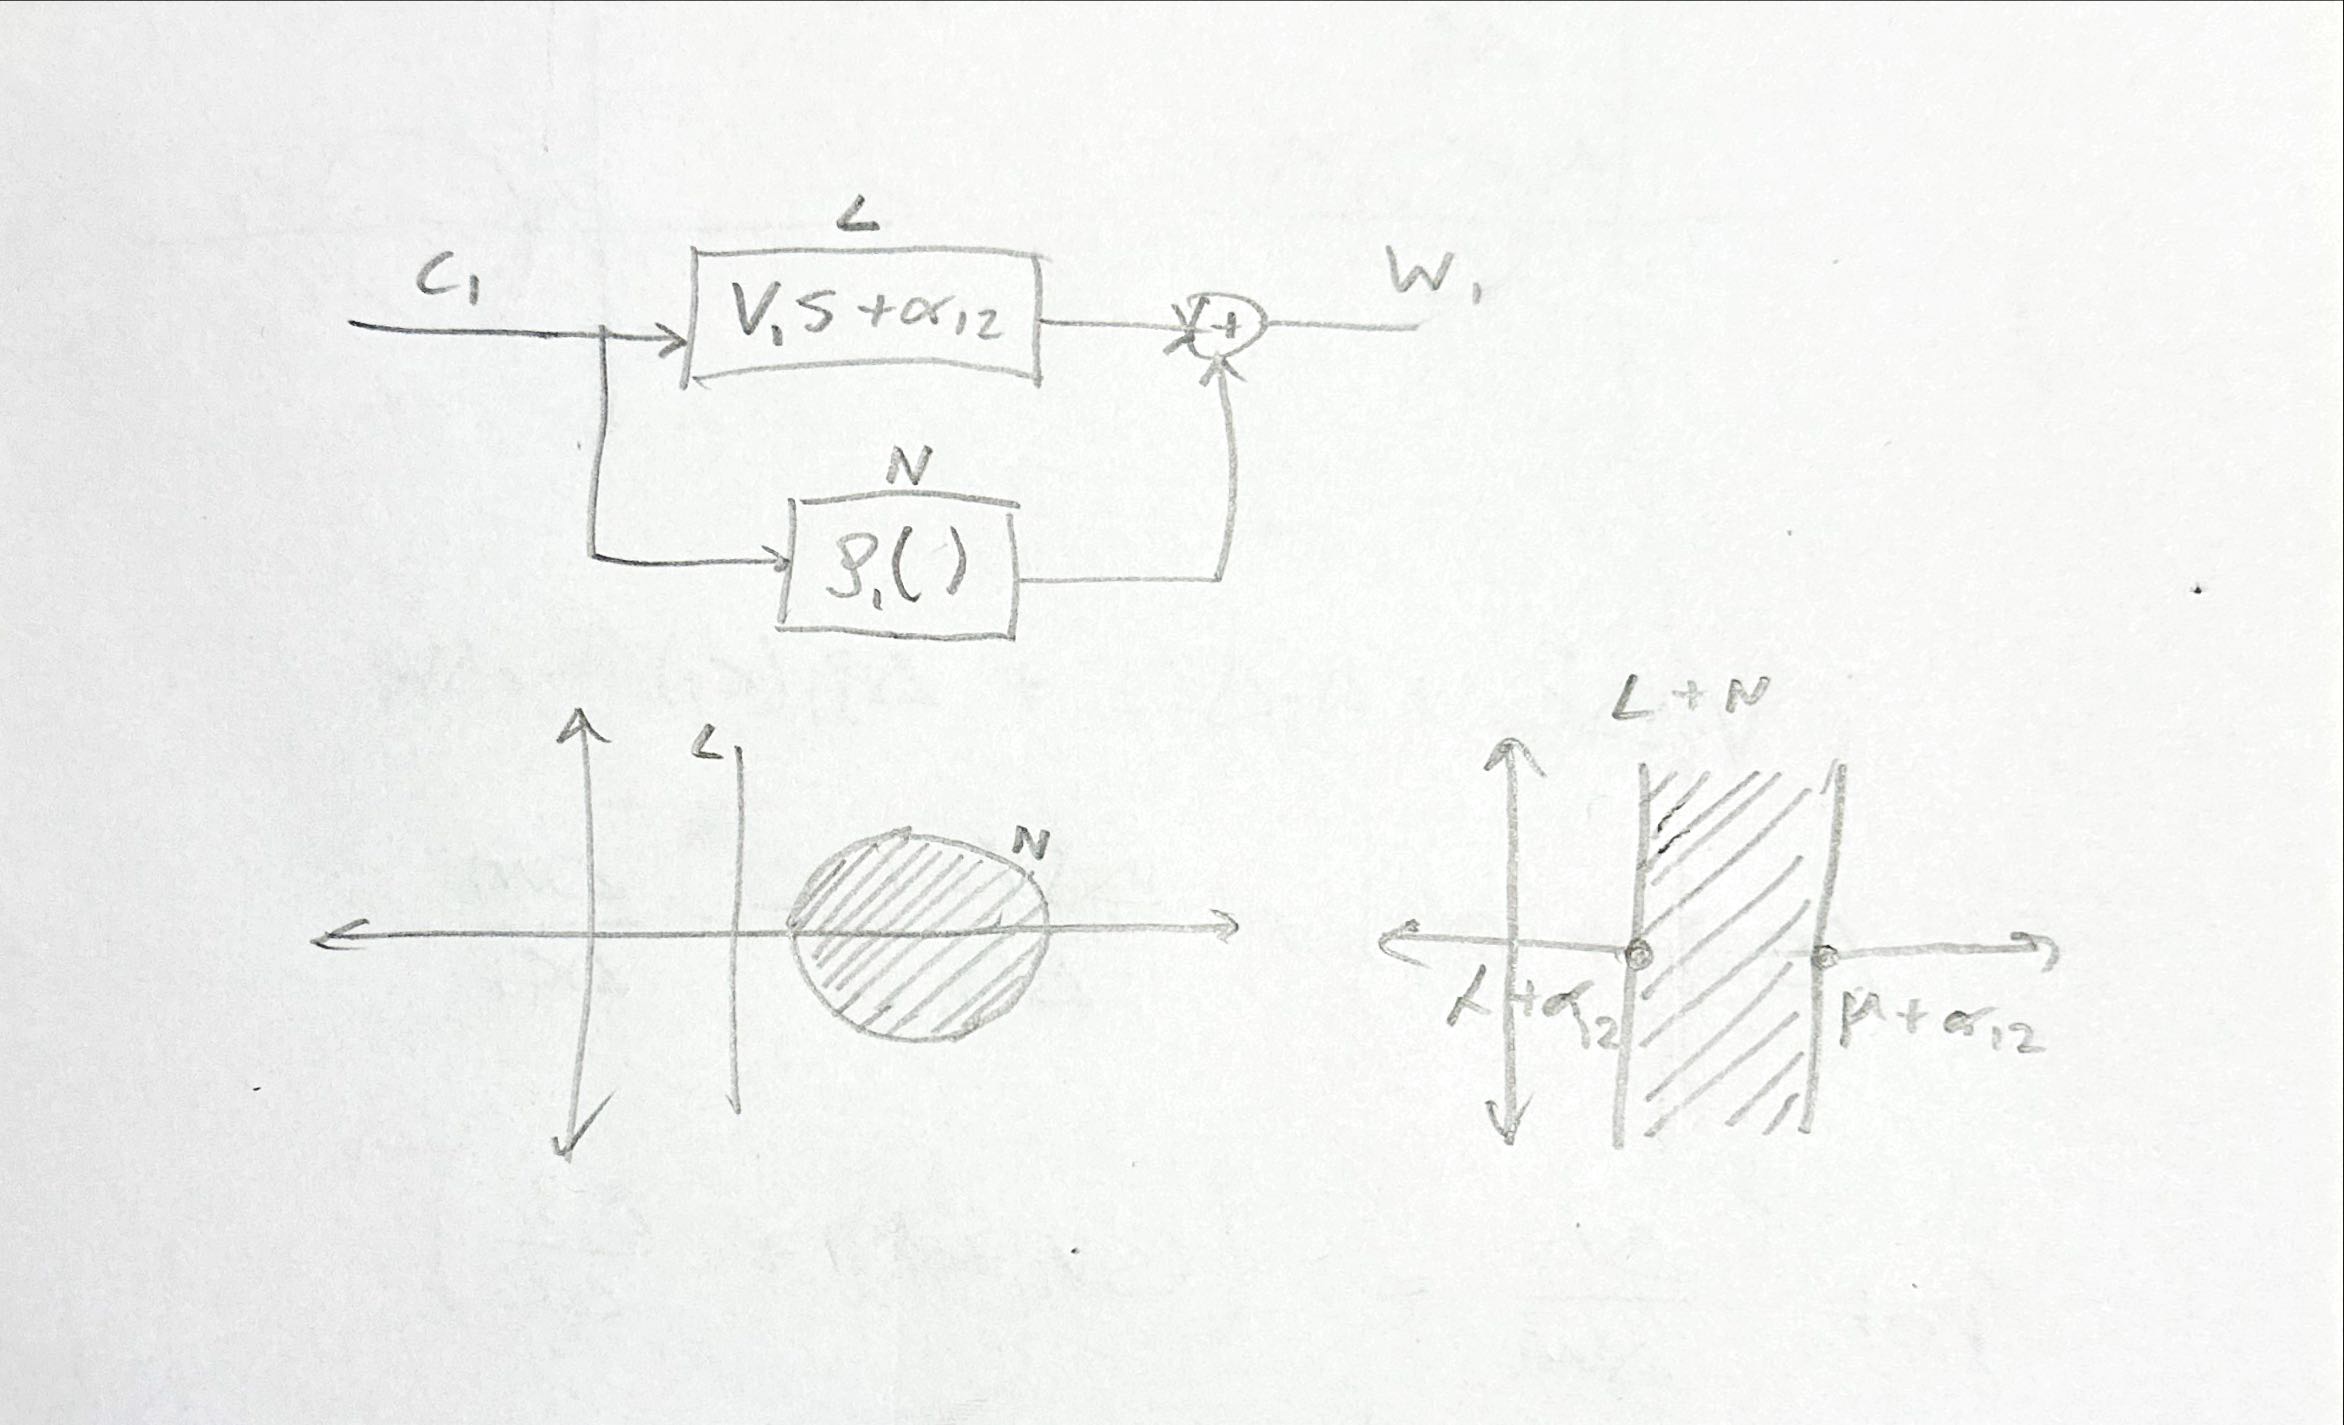 L
C₁
V₁S + α₁₂
+
W₁
N
ρ₁( )
L + N
L
N
α₁₂
μ + α₁₂